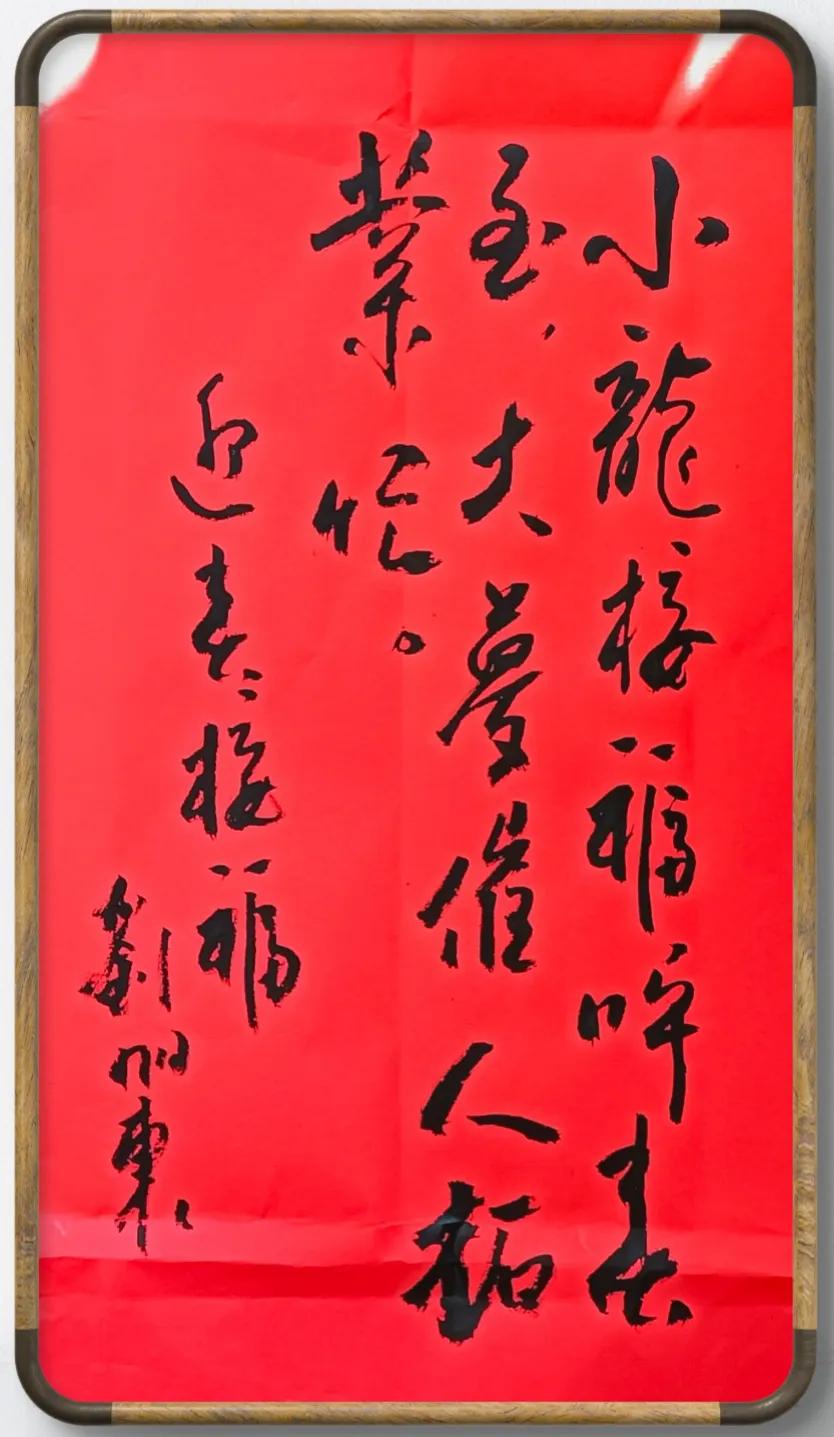 小龍接福呼春
至，大夢催人拓
業忙。
迎春接福
劉明東